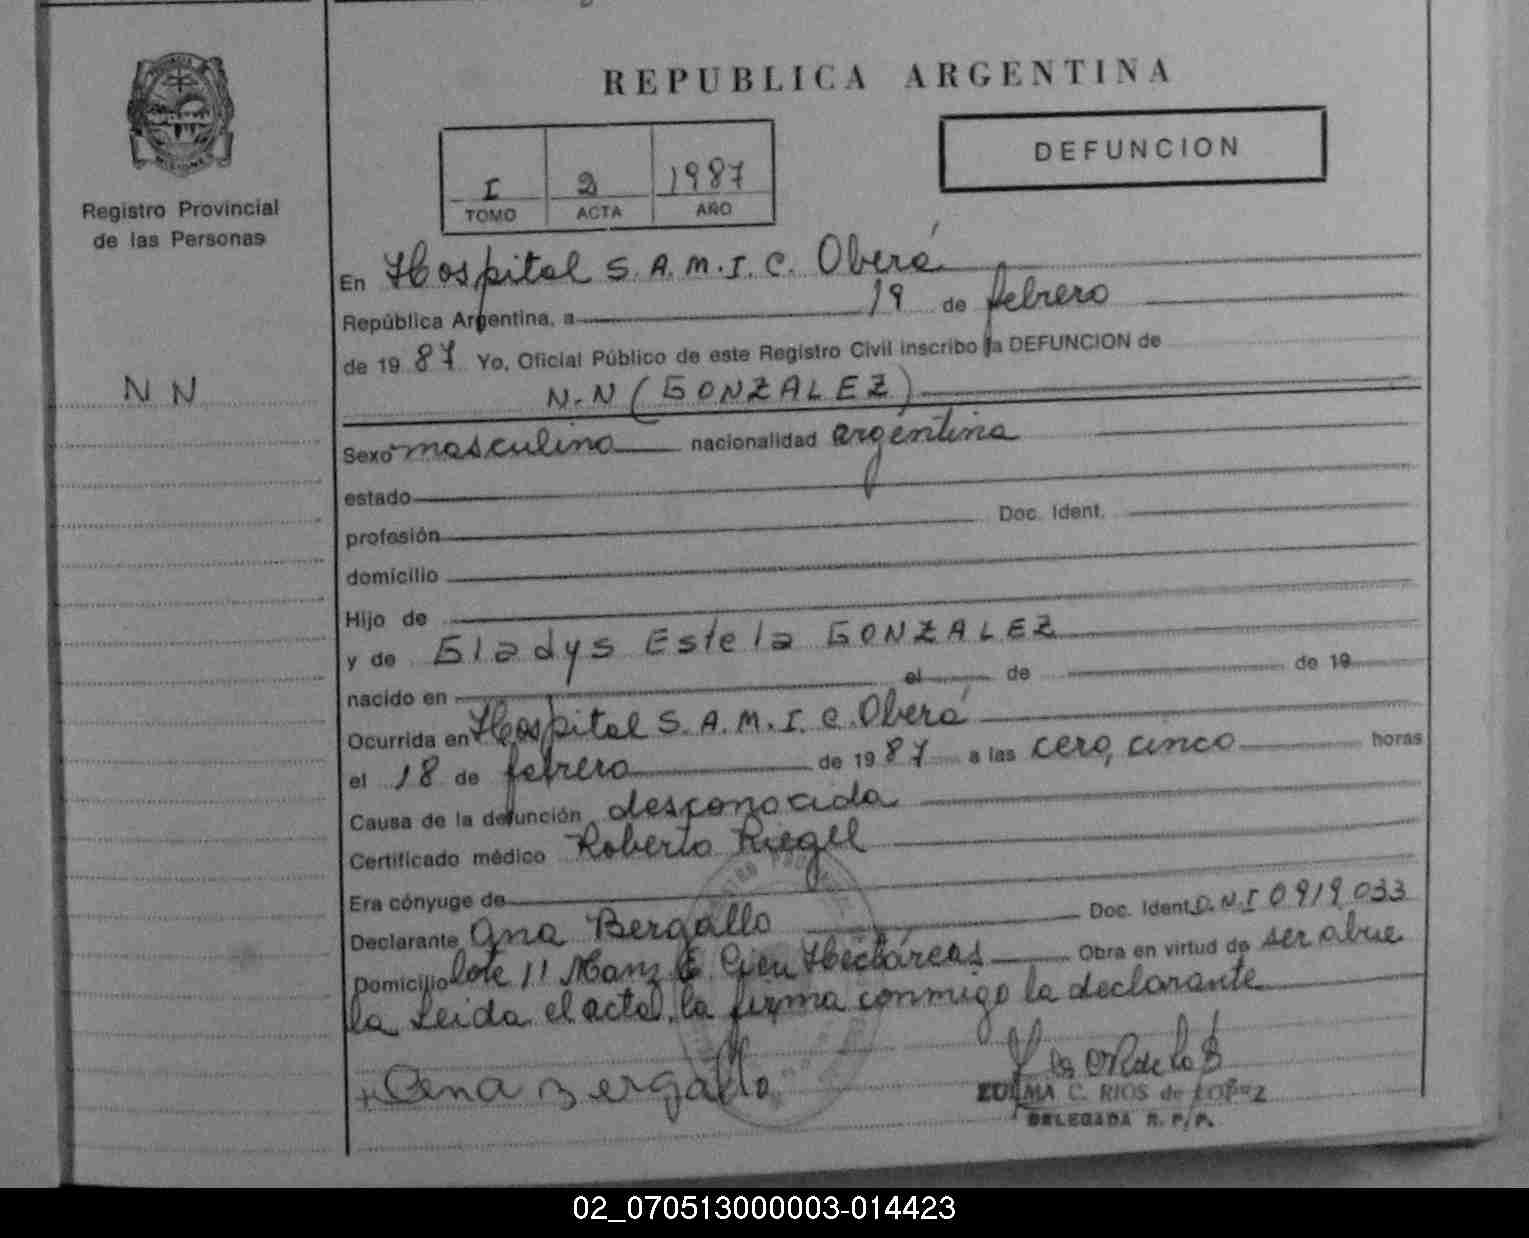 REPUBLICA ARGENTINA
DEFUNCION
I 2 1987
TOMO ACTA AÑO
Registro Provincial
de las Personas
N N
En Hospital S.A.M.I.C. Oberá
República Argentina, a 19 de febrero
de 1987 Yo, Oficial Público de este Registro Civil inscribo la DEFUNCION de
N.N (GONZALEZ)
Sexo masculino nacionalidad argentina
estado
profesión Doc. Ident.
domicilio
Hijo de
y de Gladys Estela GONZALEZ
nacido en el de de 19
Ocurrida en Hospital S.A.M.I.C. Oberá
el 18 de febrero de 1987 a las cero, cinco horas
Causa de la defunción desconocida
Certificado médico Roberto Riegel
Era cónyuge de
Declarante Ana Bergallo Doc. Ident. D.N.I 0919033
Domicilio lote 11 Manz Cien Hectáreas Obra en virtud de ser abue
la Leida el acta, la firma conmigo la declarante
Ana Bergallo
ZULMA C. RIOS de LOPEZ
DELEGADA R. P/P.
02_070513000003-014423